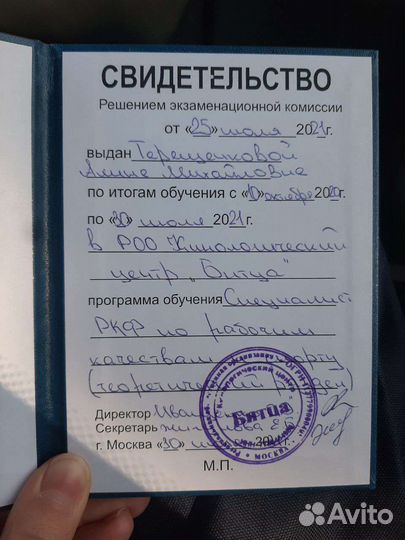 СВИДЕТЕЛЬСТВО
Решением экзаменационной комиссии
от «25» июля 2021г.
выдан Терещенковой
Анне Михайловне
по итогам обучения с «10» октября 2020г.
по «30» июля 2021г.
в РОО Кинологический
центр „Битца"
программа обучения Специалист
РКФ по рабочим
качествам
(теоретический
Директор
Секретарь
г. Москва «30» 2021г.
М.П.
Битца
МОСКВА
Avito